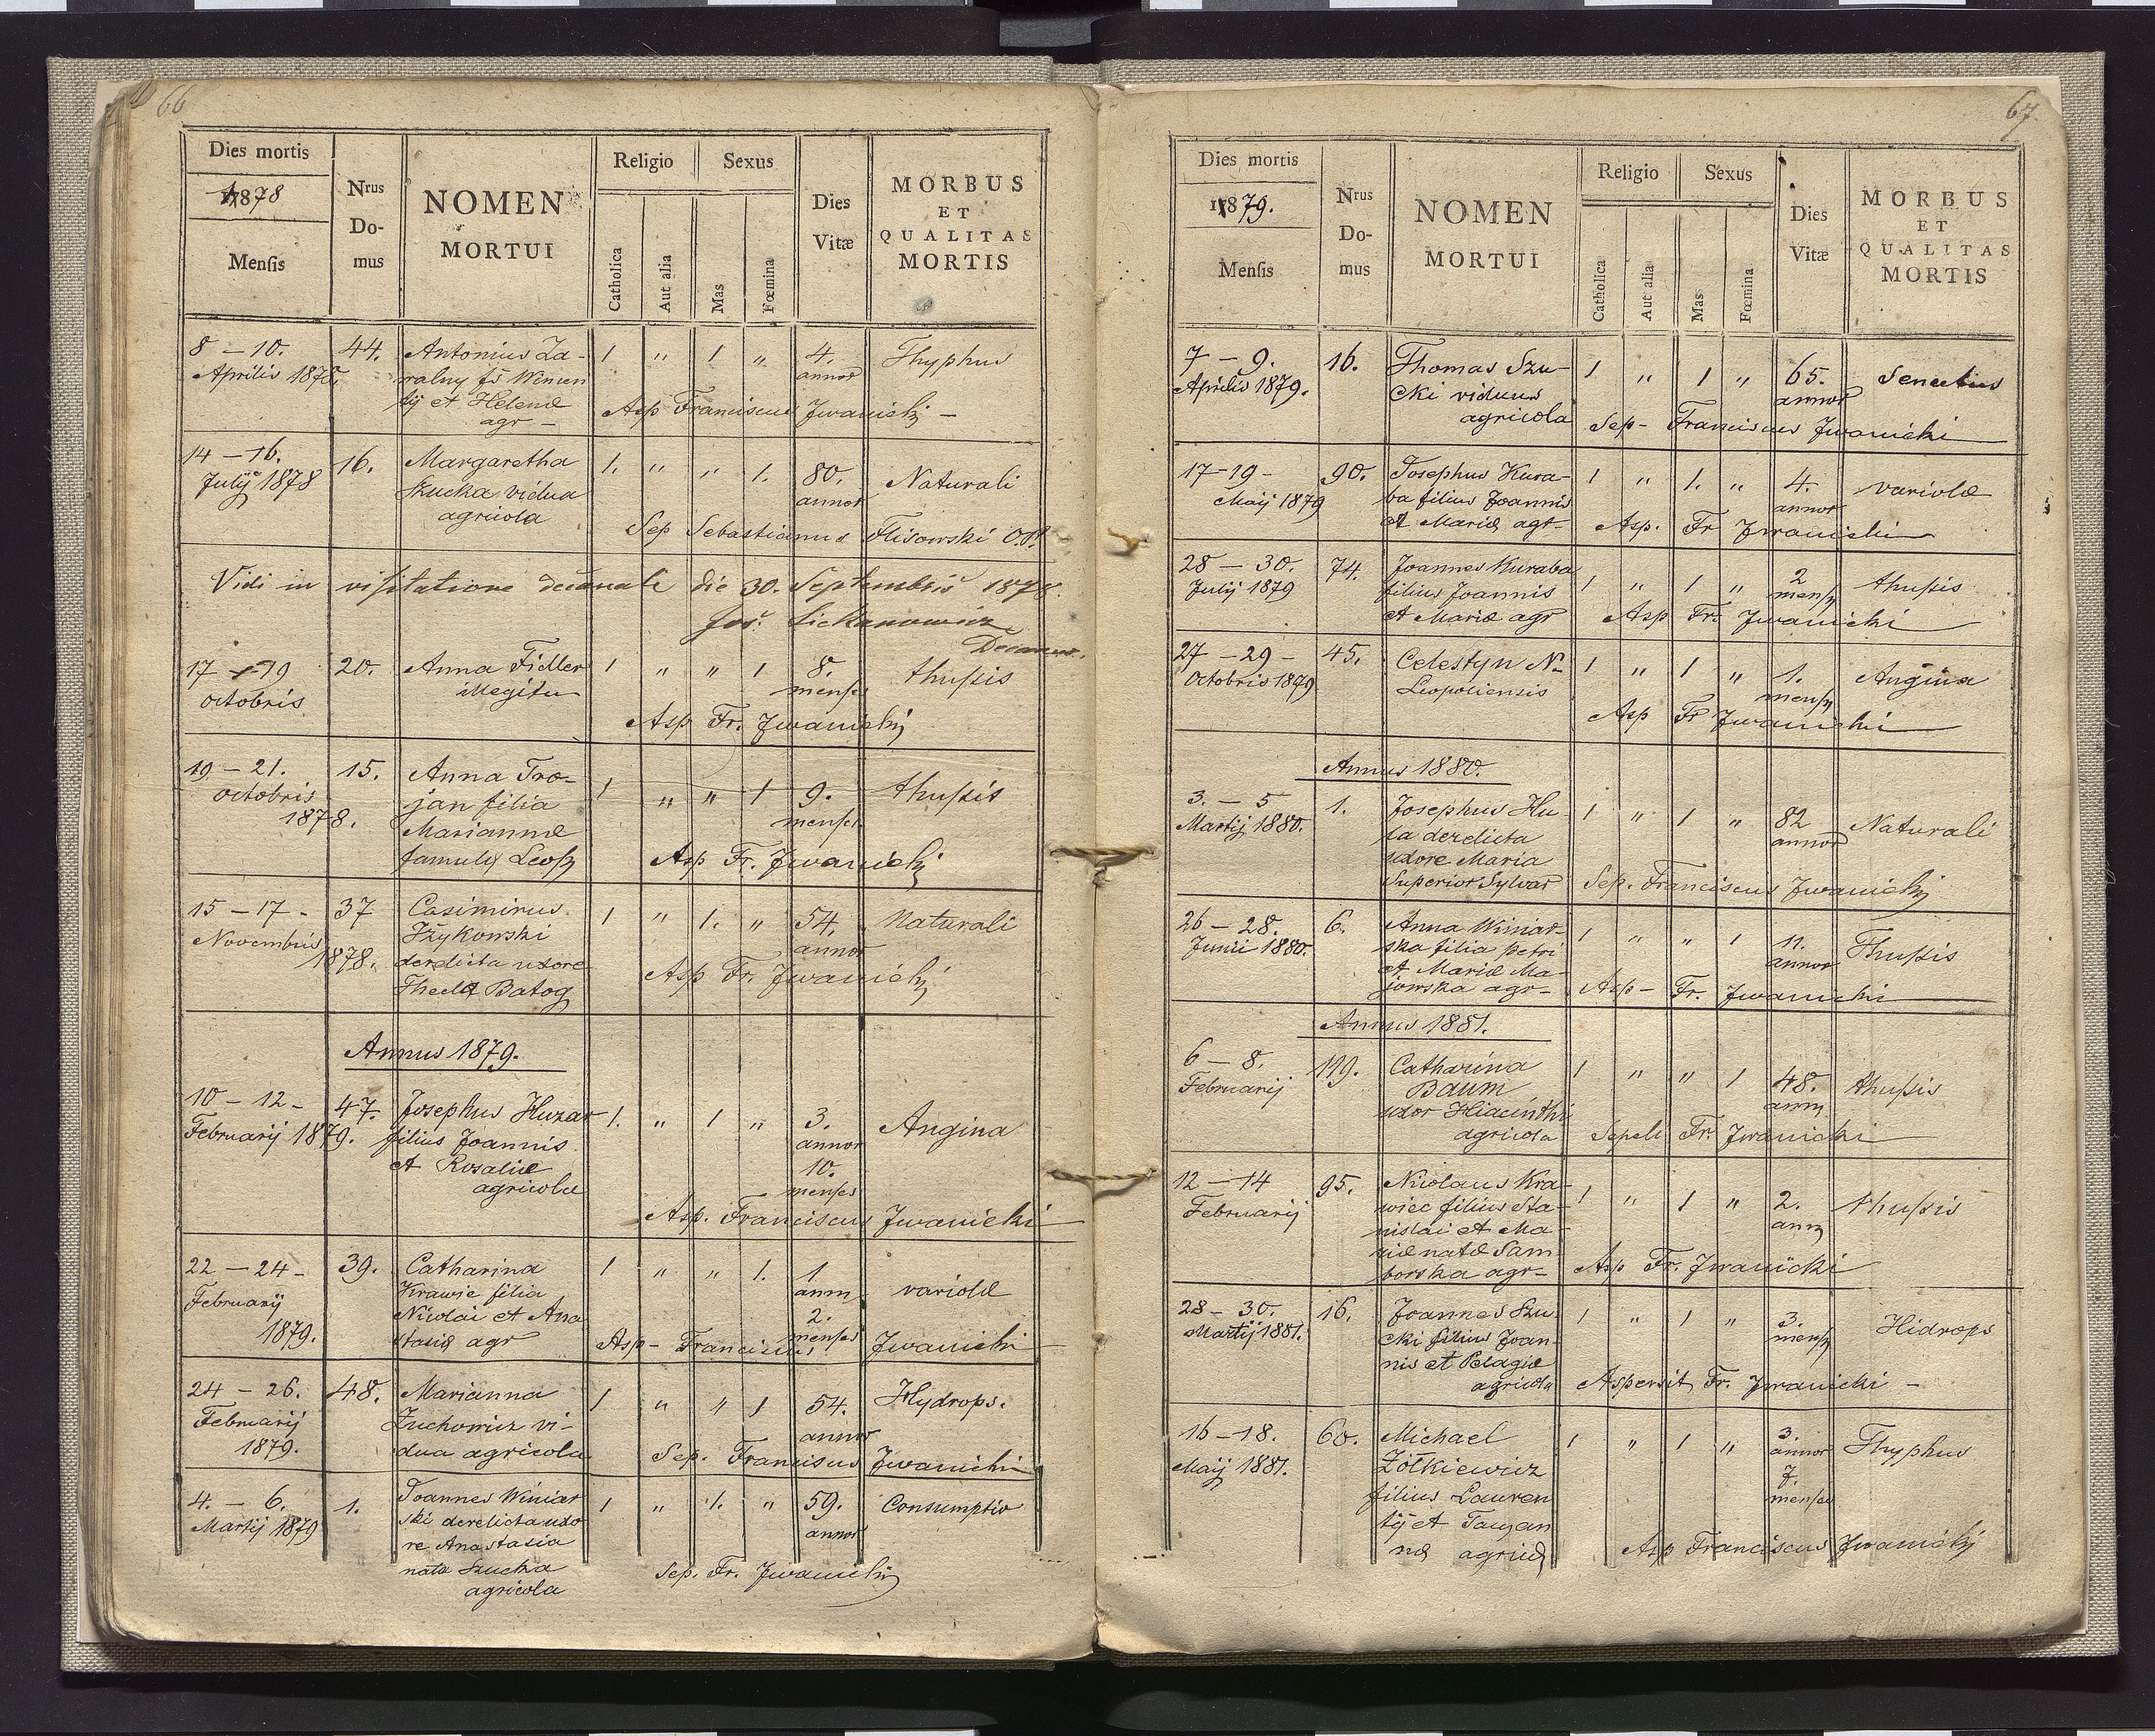 66
Dies mortis
1878
Mensis
Nrus
Do-
mus
NOMEN
MORTUI
Religio
Sexus
Catholica
Aut alia
Mas
Fœmina
Dies
Vitæ
MORBUS
ET
QUALITAS
MORTIS
8 – 10. 44. Antonius Za- 1 " 1 " 4. Thyphus
Aprilis 1878. ralny fs Wincen annor
tij et Helenæ
Asp Franciscus Jwanicki –
agr –
14 – 16. 16. Margaretha 1. " " 1. 80. Naturali
Julij 1878 Szucka vidua annor
agricola
Sep Sebastianus Flisowski O.P.
Vidi in visitatione decanali die 30. Septembris 1878.
Decanus.
17 – 19 20. Anna Fidler 1 " " 1 8. thussis
octobris illegitu menses
Asp Fr. Jwanicki
19 – 21. 15. Anna Tro- 1 " " 1 9. thussis
octobris jan filia menses
1878. Mariannæ
famulæ Leop
Asp Fr. Jwanicki
15 – 17 – 37 Casimirus 1 " 1. " 54. Naturali
Novembris annor
1878. derelicta uxore
Thecla Batog
Asp Fr. Jwanicki
Annus 1879.
10 – 12 – 47. Josephus Huzar 1. " 1 " 3. Angina
Februarij 1879. filius Joannis annor
et Rosaliæ 10.
agricolæ menses
Asp. Franciscus Jwanicki
22 – 24 – 39. Catharina 1 " " 1. 1 variolæ
Februarij Krawic filia annu
1879. Nicolai et Ana 2.
stasiæ agr menses
Asp – Franciscus Jwanicki
24 – 26. 48. Marianna 1 " " 1 54. Hydrops.
Februarij Zuchowicz vi- annor
1879. dua agricola
Sep. Franciscus Jwanicki
4. – 6. 1. Joannes Winiar 1 " 1. " 59. Consumptio
Martij 1879 ski derelicta uxo annor
re Anastasia
nata Szucka
agricola
Sep. Fr. Jwanicki
67.
Dies mortis
1879.
Mensis
Nrus
Do-
mus
NOMEN
MORTUI
Religio
Sexus
Catholica
Aut alia
Mas
Fœmina
Dies
Vitæ
MORBUS
ET
QUALITAS
MORTIS
7 – 9. 16. Thomas Szu- 1 " 1 " 65. Senectus
Aprilis 1879. cki viduus annor
agricola
Sep – Franciscus Jwanicki
17 – 19 – 90. Josephus Kura- 1 " 1. " 4. variolæ
Maij 1879 ba filius Joannis annor
et Mariæ agr –
Asp. Fr Jwanicki
28 – 30. 74. Joannes Kuraba 1 " 1 " 2 thussis
Julij 1879 filius Joannis mens
et Mariæ agr
Asp Fr. Jwanicki
27 – 29 – 45. Celestyn N. 1 " 1 " 1. Angina
Octobris 1879 Leopoliensis mens
Asp Fr Jwanicki
Annus 1880.
3. – 5 1. Josephus Hu- 1 " 1 " 82 Naturali
Martij 1880. ta derelicta annor
uxore Maria
Superior Sylvar
Sep. Franciscus Jwanicki
26 – 28. 6. Anna Winiar- 1 " " 1 11. Thussis
Junii 1880. ska filia Petri annor
et Mariæ Ma-
jowska agr –
Asp – Fr. Jwanicki
Annus 1881.
6 – 8. 119. Catharina 1 " " 1 48. thussis
Februarij Baum ann
uxor Hiacinthi
agricola
Sepel Fr. Jwanicki
12 – 14 95. Nicolaus Kra- 1 " 1 " 2. thussis
Februarij wiec filius Sta- ann
nislai et Ma-
riæ natæ Sam-
borska agr –
Asp Fr. Jwanicki
28 – 30. 16. Joannes Szu- 1 " 1 " 3. Hidrops
Martij 1881. cki filius Joan- mens
nis et Pelagiæ
agricola
Aspersit Fr. Jwanicki –
16 – 18. 60. Michael 1 " 1 " 3. Thyphus
Maij 1881. Zołkiewicz annor
filius Lauren 7.
tij et Tacyan menses
næ agricol
Asp Franciscus Jwanicki